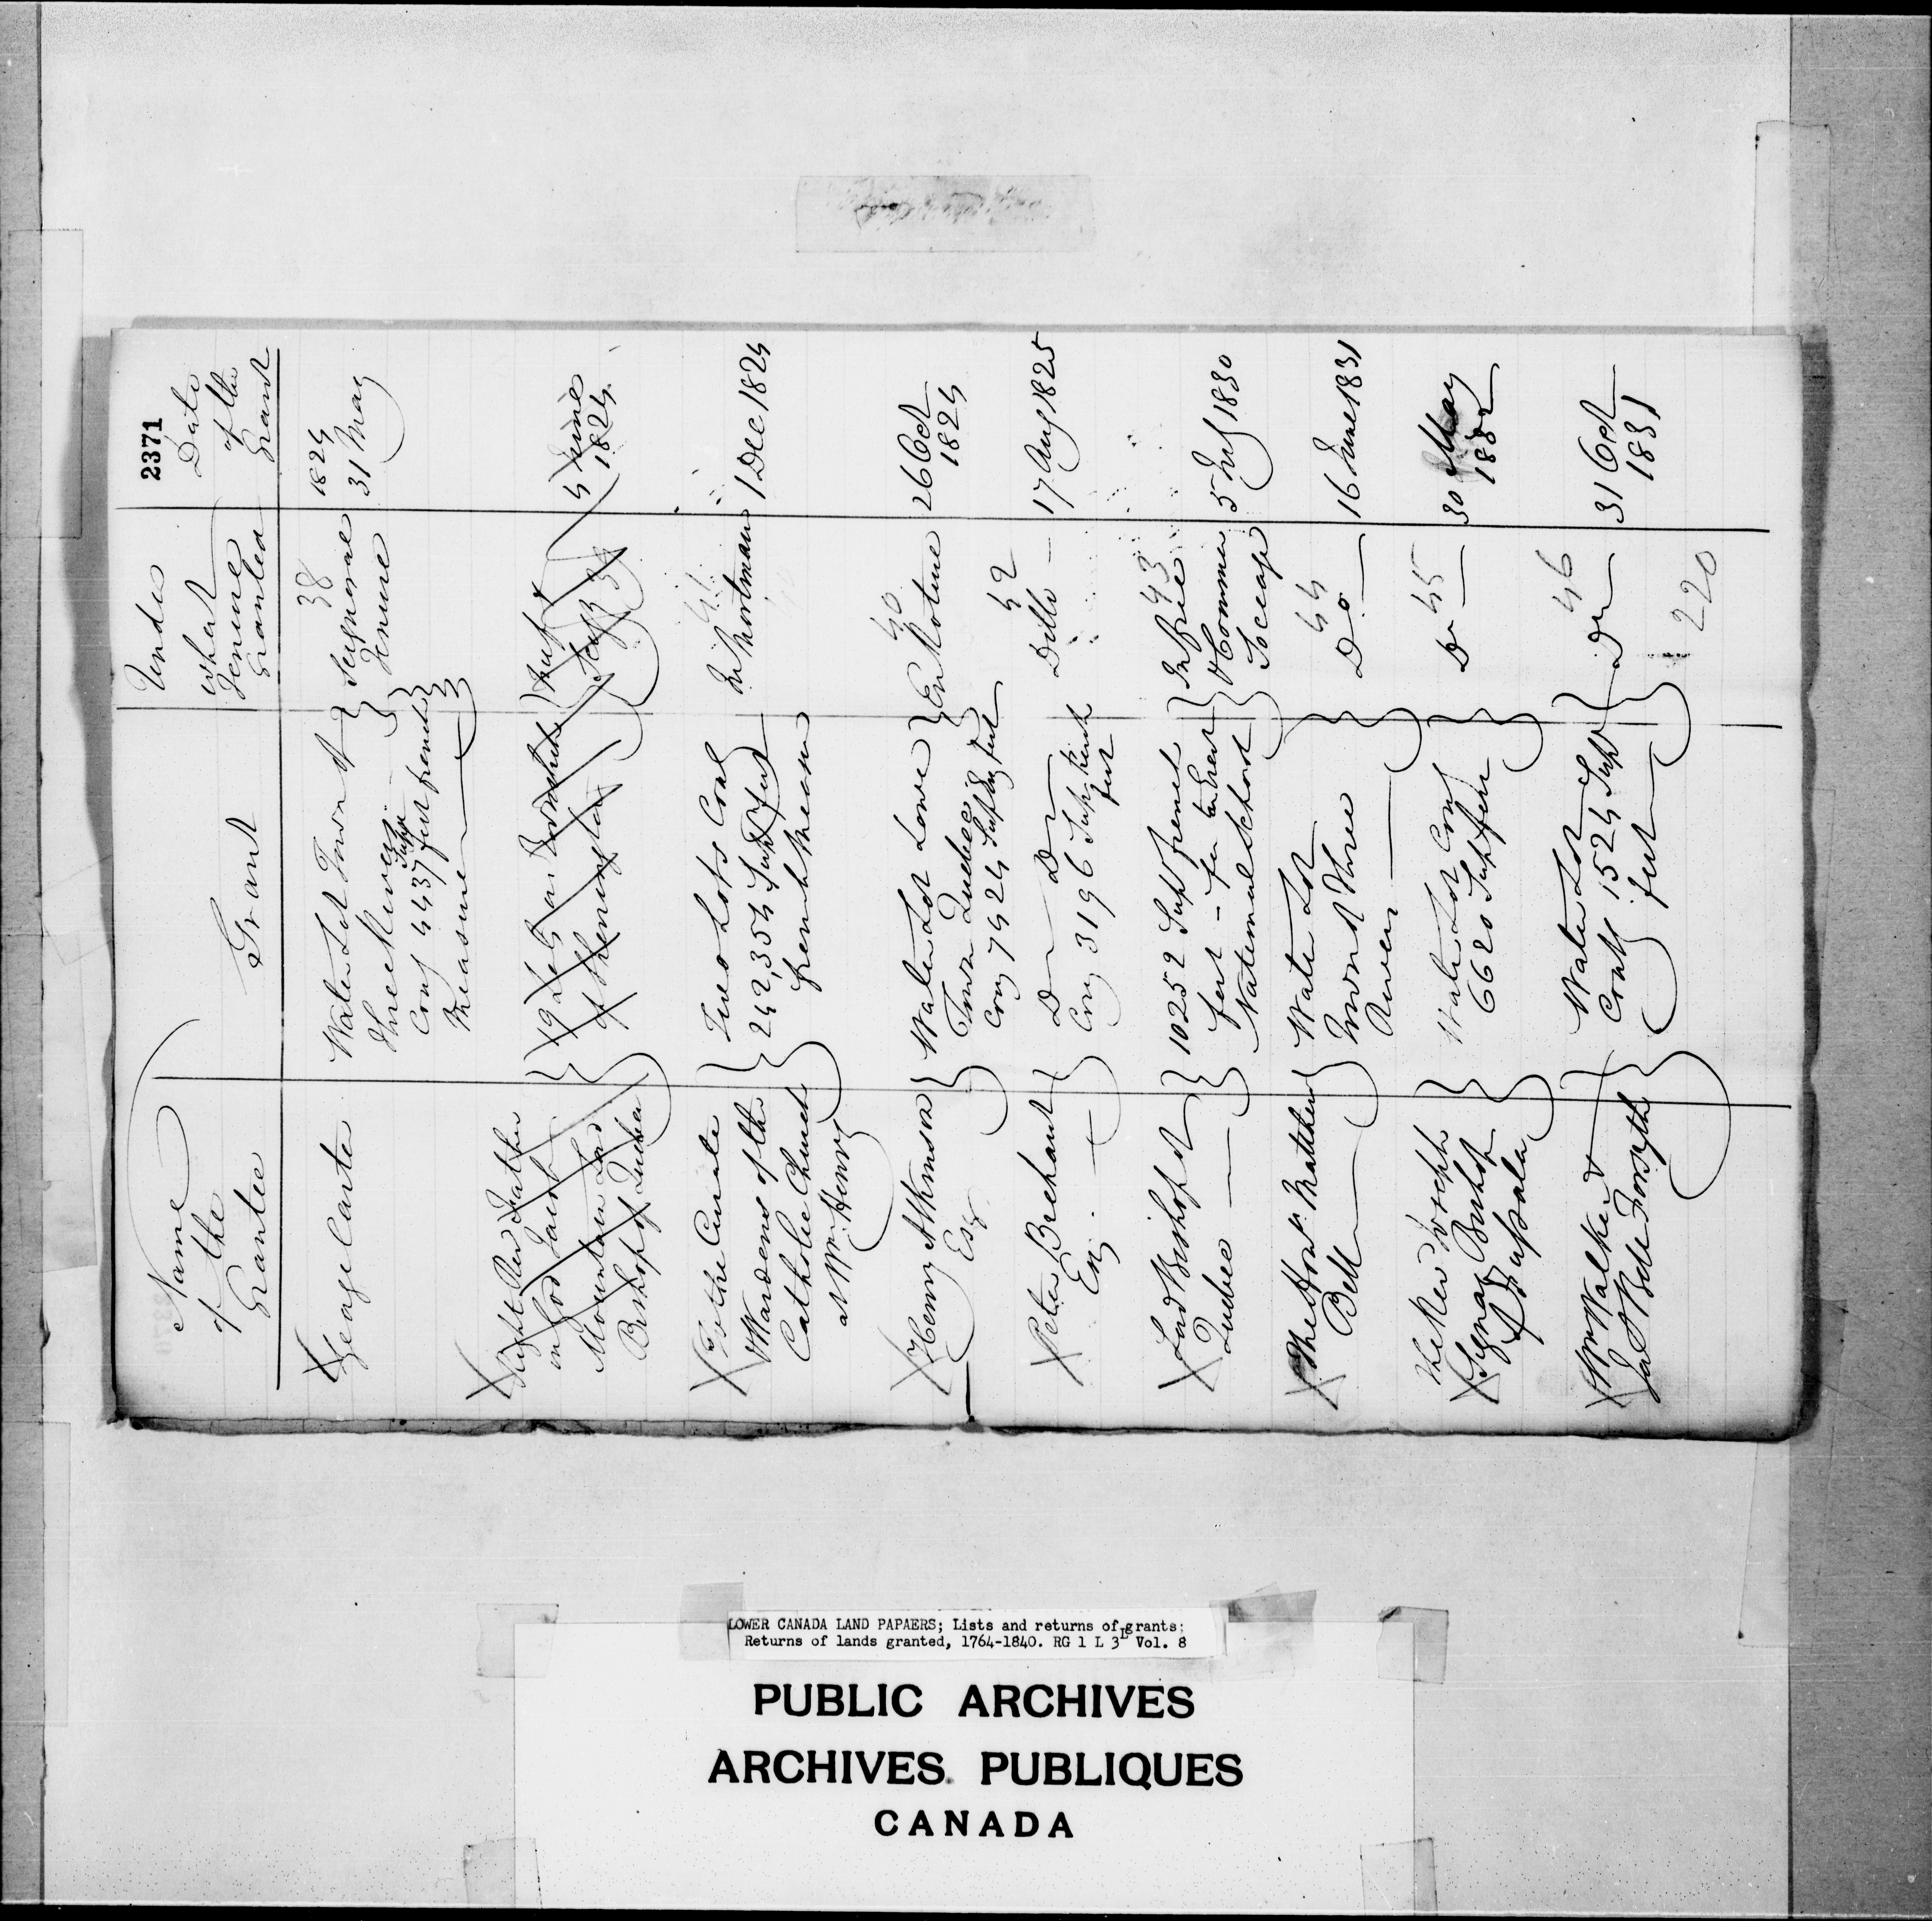 2371
Name
of the
Grantee
Grant
Under
what
Tenure
Granted
Date
of the
Grant
George Carter
Water Lot Town of
Three Rivers
Cong 4437 Supr feet french
Measure
38
Seigneurial
Tenure
1824
31 May
Right Rev Father
in God Jacob
Mountain Lord
Bishop of Quebec
19 Lots in Township
of
39
4 June
1824
To the Curate
Wardens of the
Catholic Church
at Wm Henry
Two Lots Cong
242,354 Supl feet
french Measure
41
In Mortmain
1 Dec 1824
Henry Atkinson
Esqr
Water Lot Lower
Town Quebec
Cong 7424 Supl Eng feet
40
En Roture
26 Oct
1824
Peter Brehaut
Esq.
Do Do
Cong 3196 Supl french
feet
42
Ditto
17 Aug 1825
Lord Bishop of
Quebec
10252 Supl french
feet - for
National School
43
In free
& Common
Soccage
5 July 1830
The Honr. Matthew
Bell
Water Lot
Town of Three
Rivers
44
Do
16 June 1831
The Rev Joseph
Signay Bishop
of Fussala
Water Lot Cong
6620 Supl feet
45
Do
30 May
1832
Wm Walker &
Jas Bell Forsyth
Water Lot
Contg 1524 Supl
feet
46
Do
31 Oct
1831
220
LOWER CANADA LAND PAPAERS; Lists and returns of grants;
Returns of lands granted, 1764-1840. RG 1 L 3L Vol. 8
PUBLIC ARCHIVES
ARCHIVES PUBLIQUES
CANADA